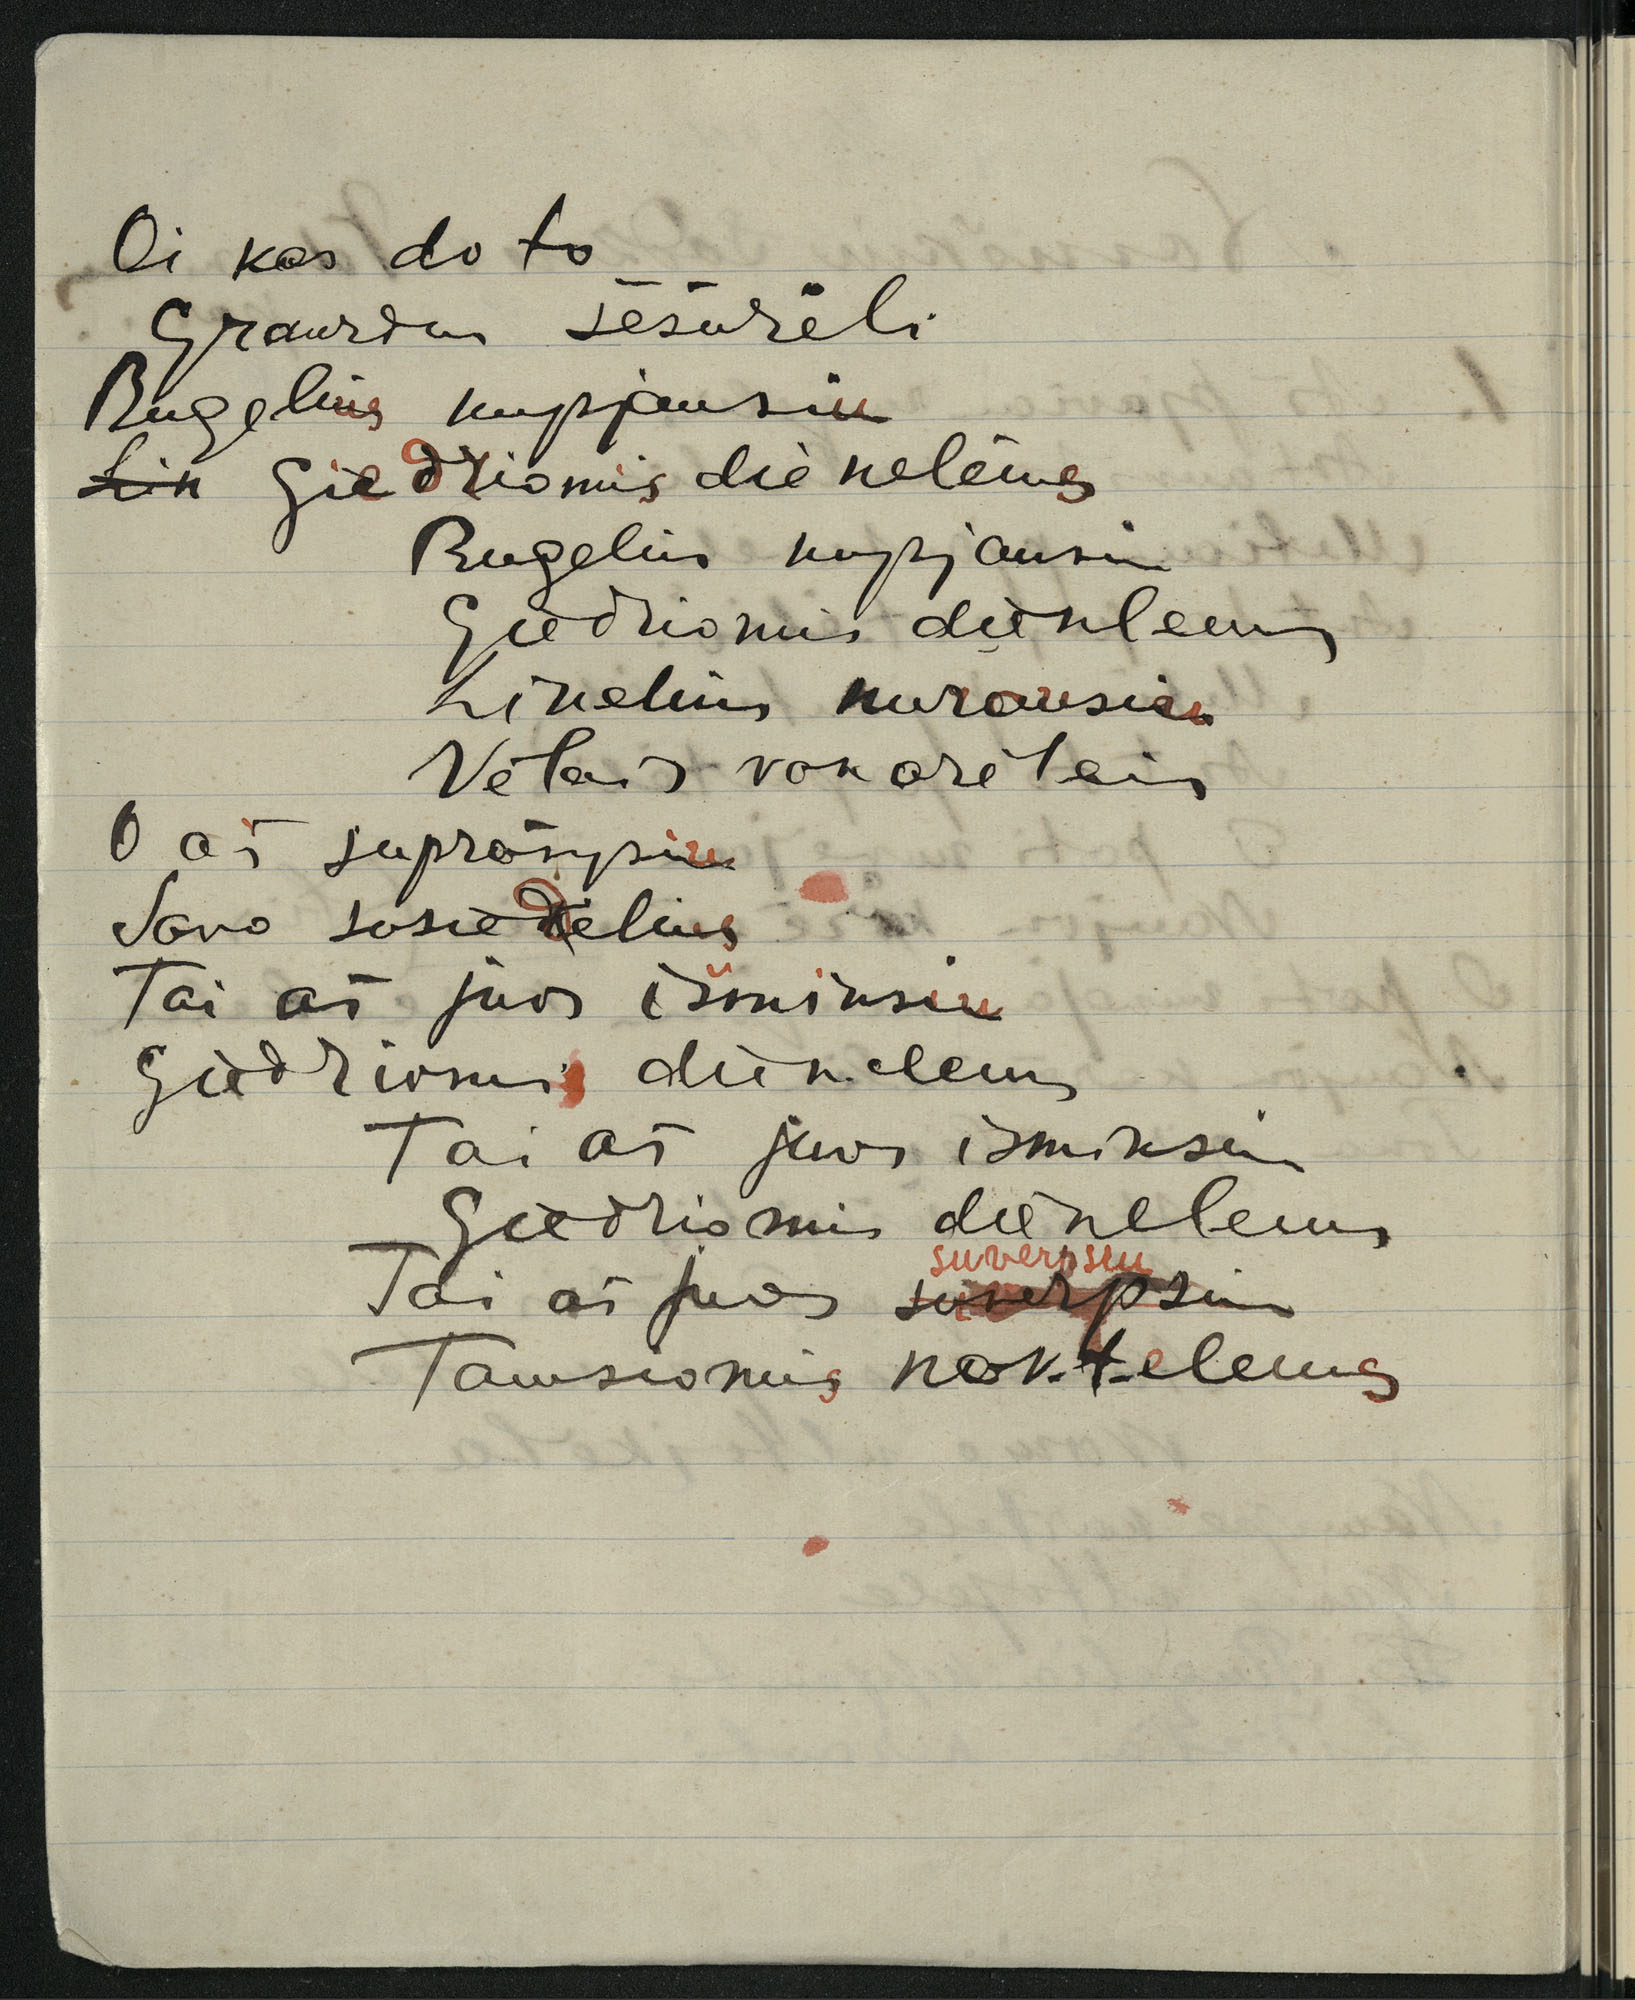 Oi kas do to
Graurdus šėšurėli
Rugelius nupjausiu
Lin Giedriomis dienelėms
Rugelius nupjausiu
Giedriomis dienlems
Linelius nurausiu
Vėlais vakarėlais
O aš suprašysiu
Savo susiedelius
Tai aš juos išminsiu
Giedriomis dienelems
Tai aš juos isminsiu
Giedriomis dienelems
suverpsiu
Tai aš juos suverpsiu
Tamsiomis naktelems